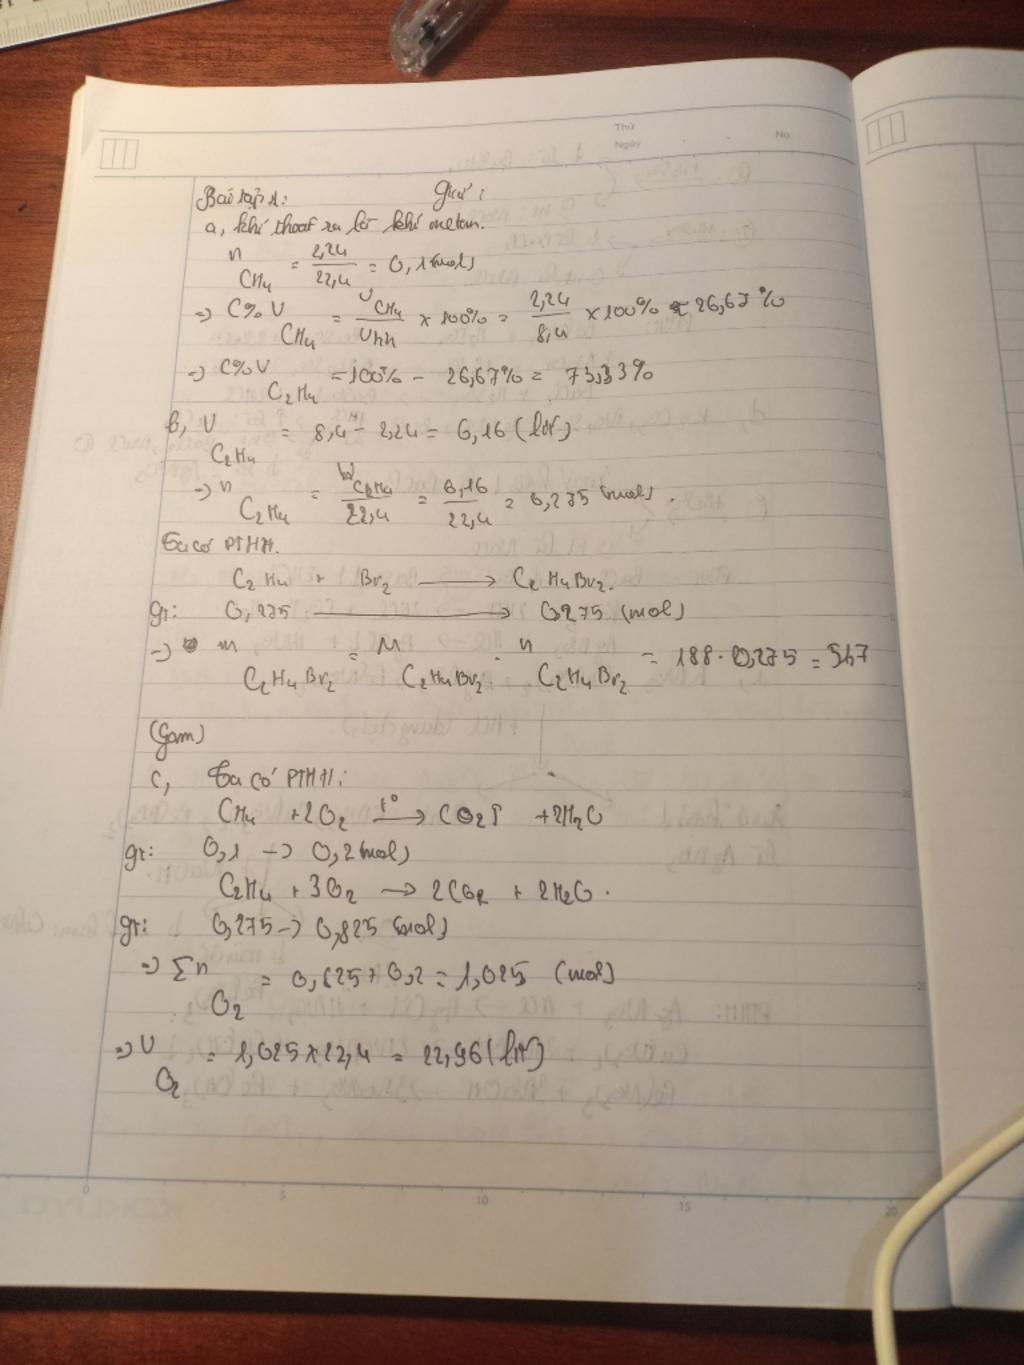 Thứ
Ngày
No.
Bài tập 1: Giải:
a, khí thoát ra là khí metan.
n CH4 = 2,24/22,4 = 0,1 (mol)
=> C% V CH4 = V CH4/Vhh × 100% = 2,24/8,4 × 100% ≈ 26,67%
=> C% V C2H4 = 100% - 26,67% = 73,33%
b, V C2H4 = 8,4 - 2,24 = 6,16 (lít)
=> n C2H4 = V C2H4/22,4 = 6,16/22,4 = 0,275 (mol).
Ta có PTHH.
C2H4 + Br2 → C2H4Br2.
gt: 0,275 → 0,275 (mol)
=> m C2H4Br2 = M C2H4Br2 . n C2H4Br2 = 188 . 0,275 = 51,7
(Gam)
c, Ta có PTHH:
CH4 + 2O2 t° → CO2↑ + 2H2O
gt: 0,1 → 0,2 (mol)
C2H4 + 3O2 → 2CO2 + 2H2O.
gt: 0,275 → 0,825 (mol)
=> Σn O2 = 0,825 + 0,2 = 1,025 (mol)
=> V O2 = 1,025 × 22,4 = 22,96 (lít)
0 5 10 15 20